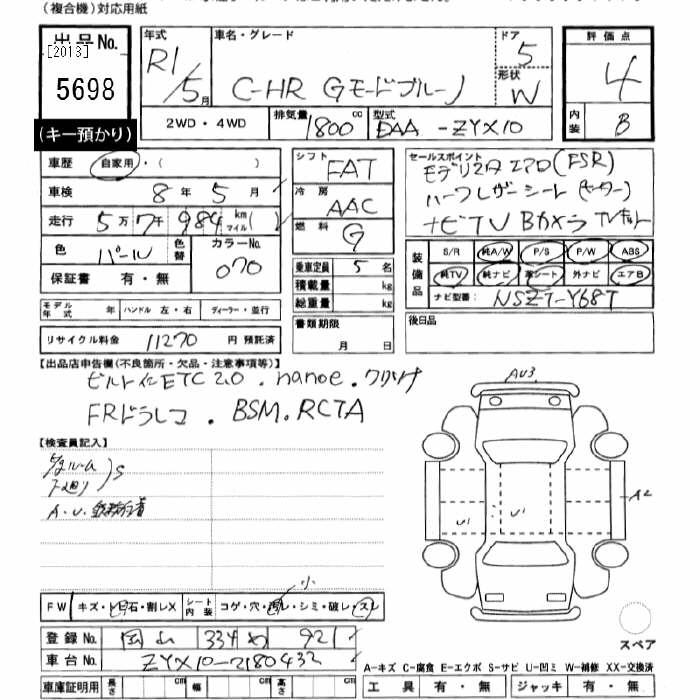 (複合機)対応用紙
出品No.
[2013]
5698
(キー預かり)
年式
R1/5月
車名・グレード
C-HR Gモードブルーノ
ドア
5
形状
W
評価点
4
内装
B
2WD・4WD
排気量
1800cc
型式
DAA-ZYX10
車歴 自家用・( )
車検 8年5月
走行 5万7千984km マイル( )
色 パール 色替 カラーNo. 070
保証書 有・無
シフト FAT
冷房 AAC
燃料 G
乗車定員 5名
積載量 kg
総重量 kg
セールスポイント
モデリスタエアロ(FSR)
ハーフレザーシート(ヒーター)
ナビTV BカメラTVキット
装備品
S/R 純A/W P/S P/W ABS
純TV 純ナビ 革シート 外ナビ エアB
ナビ型番: NSZT-Y68T
モデル年式 年 ハンドル 左・右 ディーラー・並行
リサイクル料金 11270 円 預託済
書類期限 月 日
後日品
【出品店申告欄(不良箇所・欠品・注意事項等)】
ビルトインETC2.0.nanoe.
FRドラレコ.BSM.RCTA
【検査員記入】
S
A.U.
AU3
A2
U1
U1
小
FW キズ・ヒ石・割レX シート内装 コゲ・穴・汚レ・シミ・破レ・スレ
登録No. 岡山 334 め 921
車台No. ZYX10-2180432
車庫証明用 長さ cm 幅 cm 高さ cm
スペア
A-キズ C-腐食 E-エクボ S-サビ U-凹ミ W-補修 XX-交換済
工具 有・無 ジャッキ 有・無